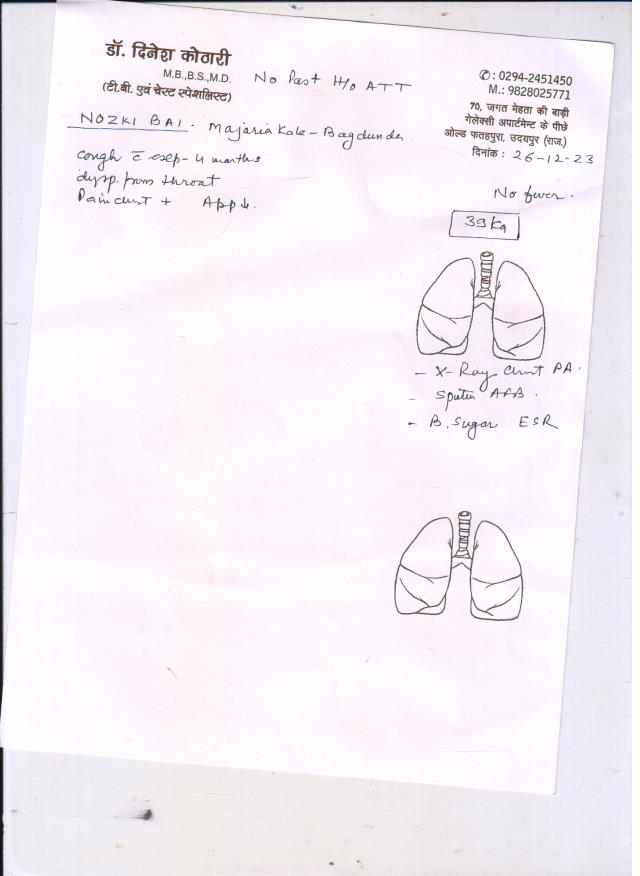 डॉ. दिनेश कोठारी
M.B.,B.S.,M.D.
(टी.बी. एवं चेस्ट स्पेशलिस्ट)
No Past H/o ATT
✆ : 0294-2451450
M.: 9828025771
70, जगत मेहता की बाड़ी
गेलेक्सी अपार्टमेन्ट के पीछे
ओल्ड फतहपुरा, उदयपुर (राज.)
दिनांक : 26-12-23
NOZKI BAI. Majaria Kala - Bagdunda
cough c̄ - 4 months
from throat
Pain chest + App ↓.
No fever.
39 Kg
- X-Ray Chest PA.
- Sputm AFB.
- B. Sugar ESR